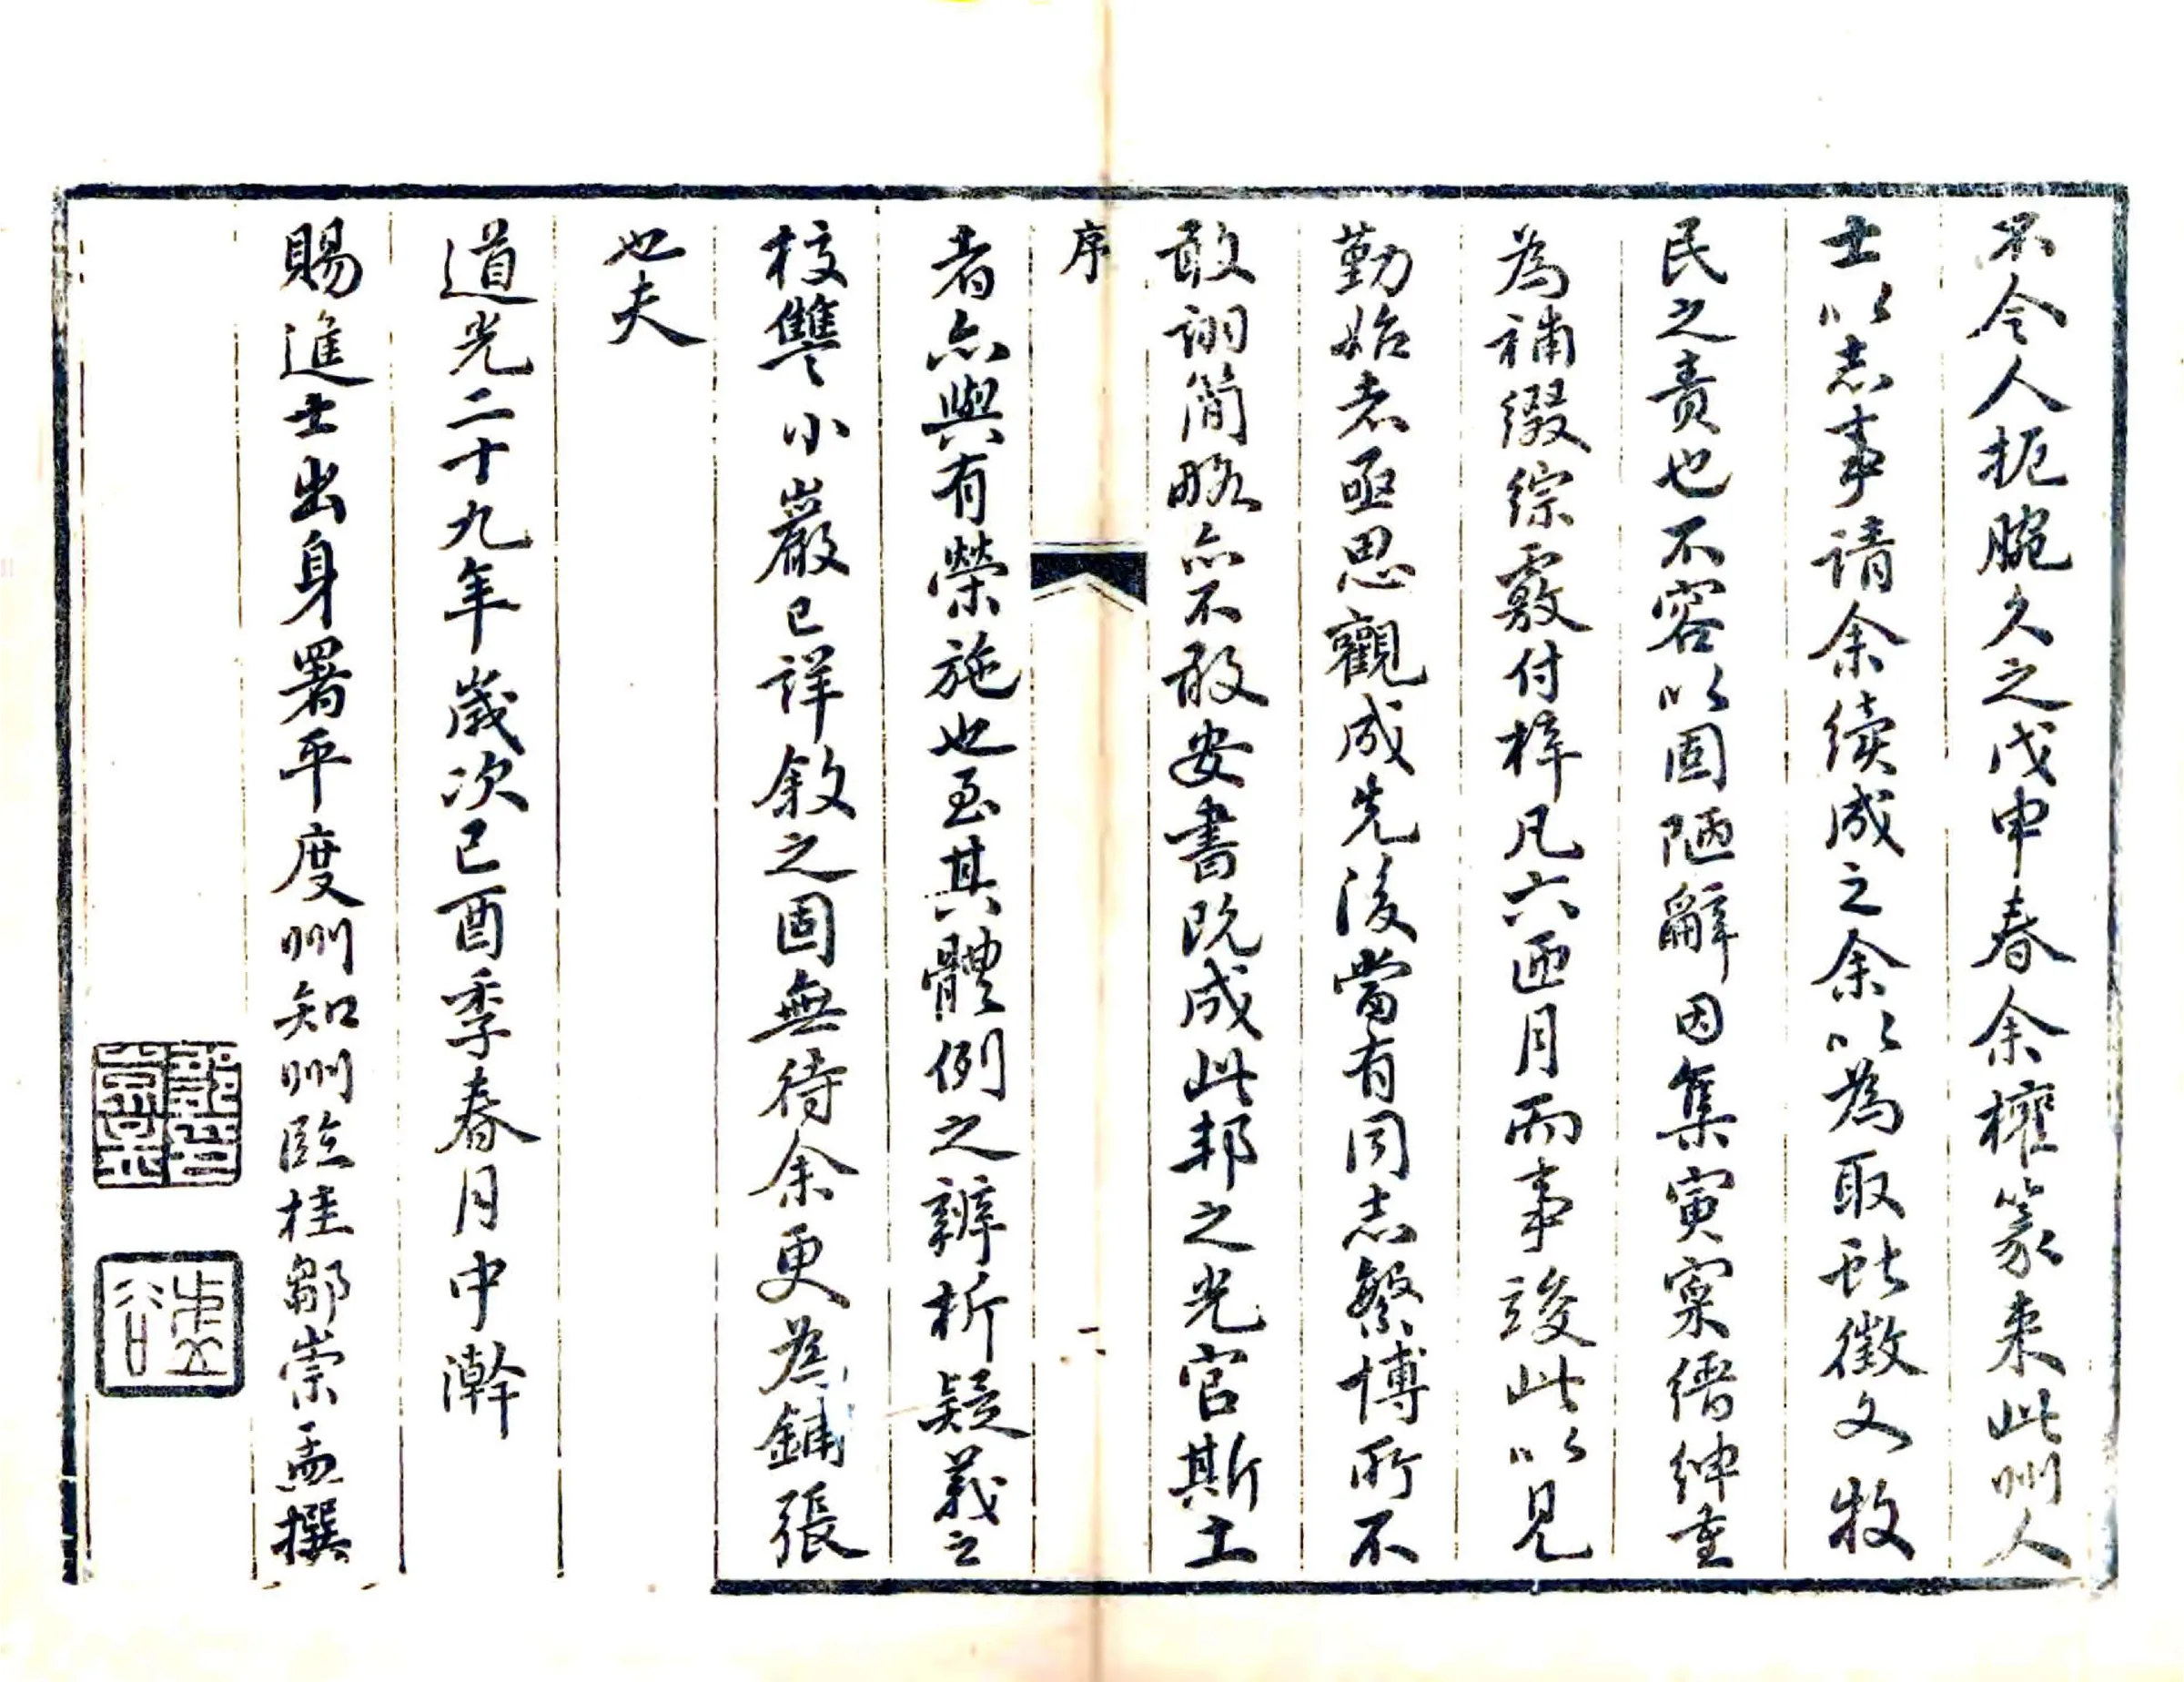 不令人扼腕久之戊申春余權篆来此州人
士以志事请余續成之余以為取獻徵文牧
民之責也不容以固陋辭因集寅寀縉紳重
為補綴綜覈付梓凡六匝月而事竣此以見
勤始者亟思觀成先後當有同志繁博所不
敢詡簡略亦不敢安書既成此邦之光官斯土
序
二
者亦與有榮施也至其體例之辨析疑義之
校讐小巖已詳敘之固無待余更為鋪張
也夫
道光二十九年歲次己酉季春月中澣
賜進士出身署平度州知州臨桂鄒崇孟撰